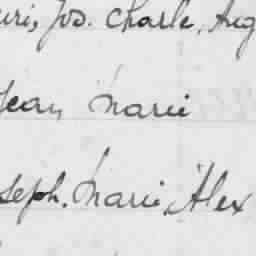 uris, Jos. Charle, Aug
Jean Marie
seph. Marie, Alex